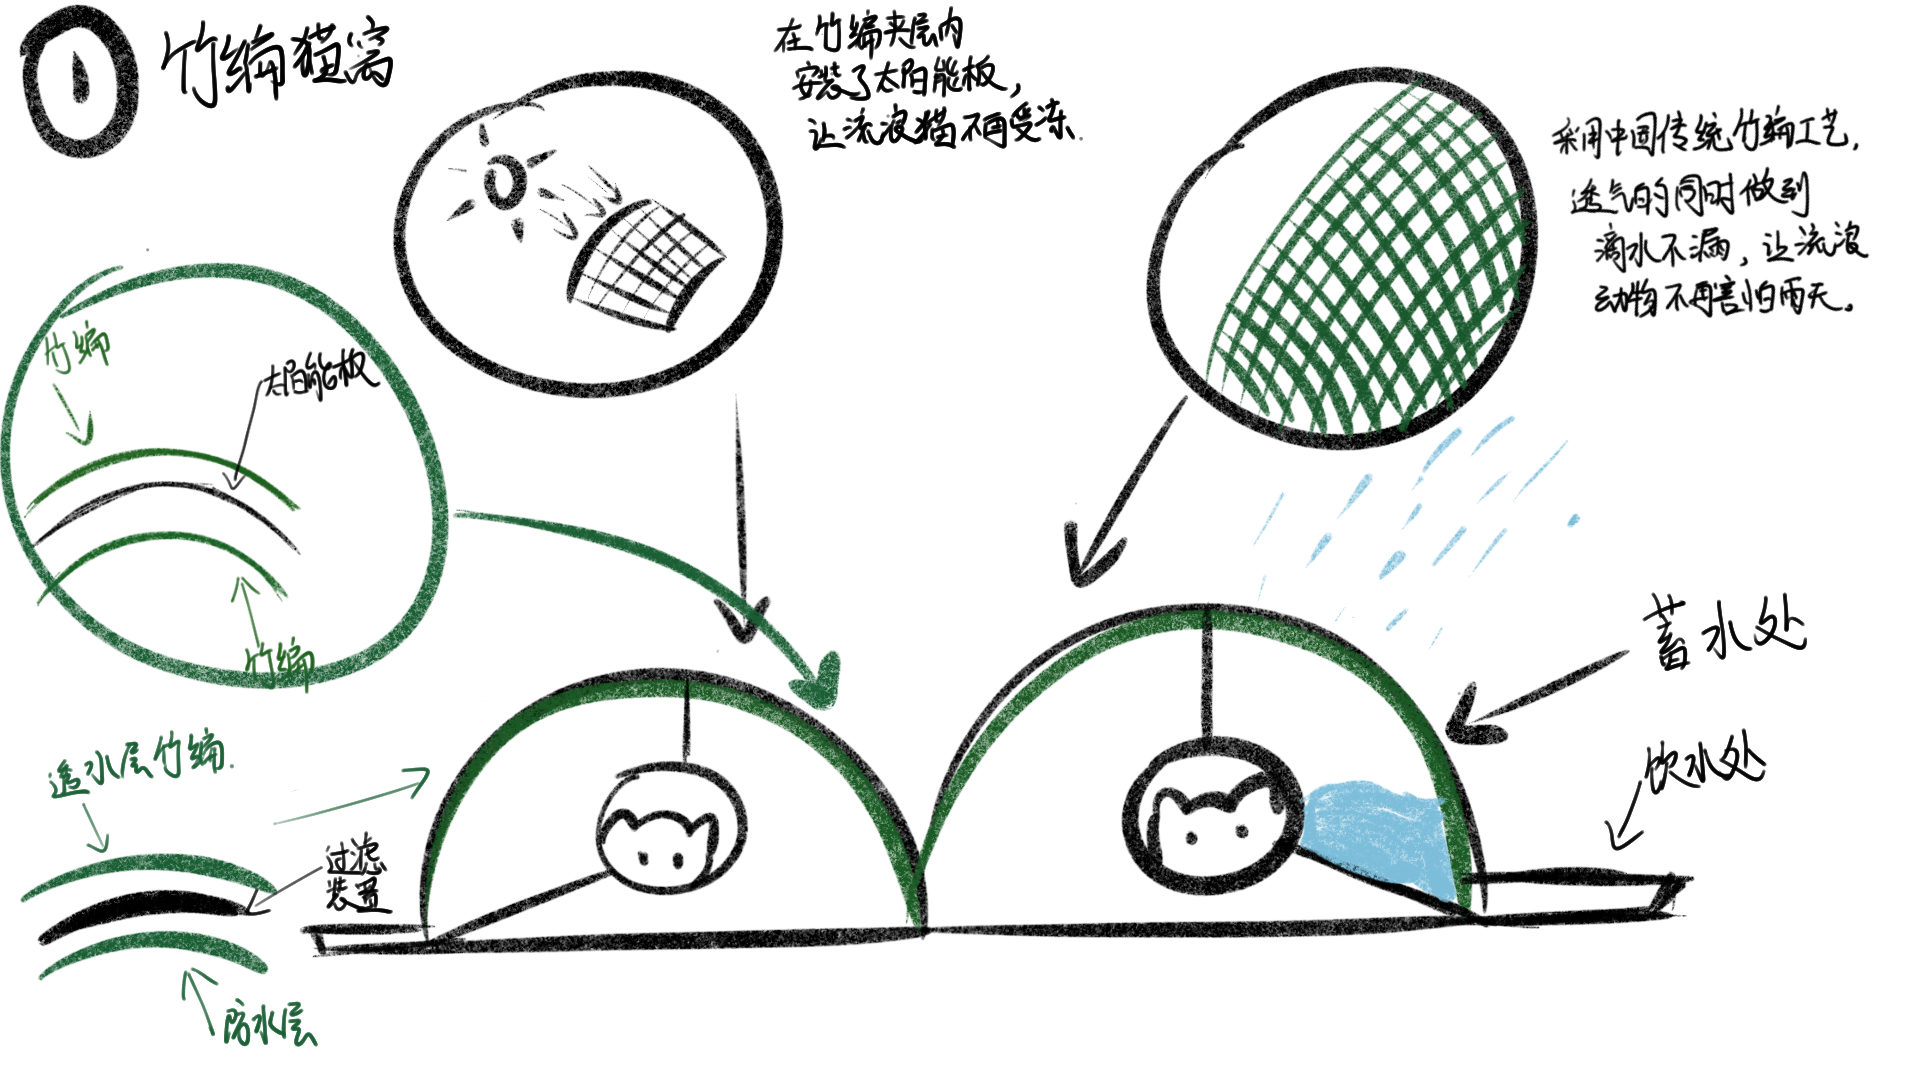 1 竹编猫窝
在竹编夹层内
安装了太阳能板,
让流浪猫不再受冻.
采用中国传统竹编工艺,
透气的同时做到
滴水不漏,让流浪
动物不再害怕雨天。
竹编
太阳能板
竹编
蓄水处
饮水处
透水层竹编.
过滤
装置
防水层